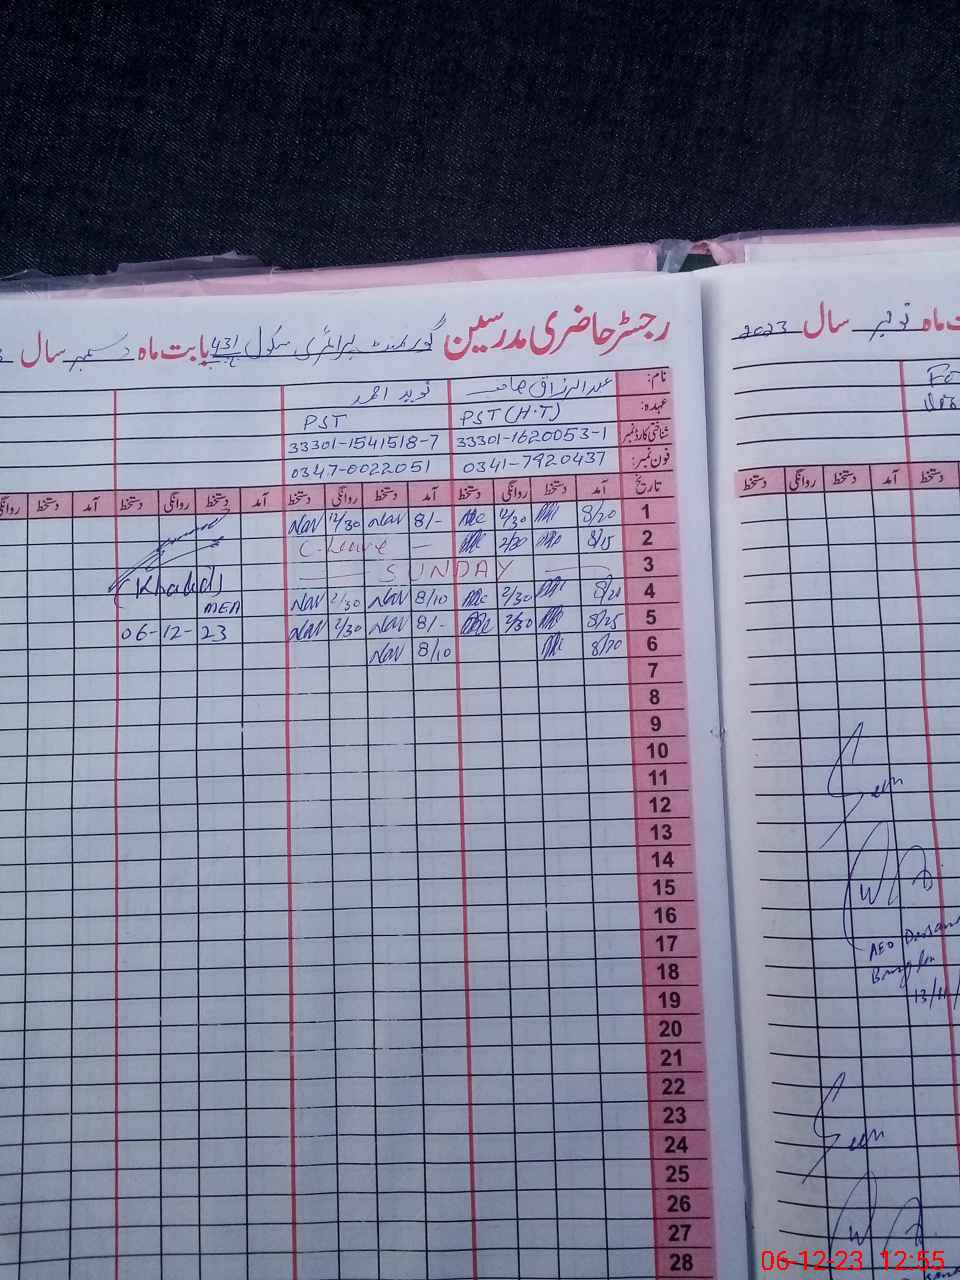 رجسٹر حاضری مدرسین گورنمنٹ پرائمری سکول 431 بابت ماہ دسمبر سال
نام: عبدالرزاق صاحب نوید احمد
عہدہ: PST (H.T) PST
شناختی کارڈ نمبر 33301-1620053-1 33301-1541518-7
فون نمبر: 0341-7920437 0347-0022051
تاریخ آمد دستخط روانگی دستخط آمد دستخط روانگی دستخط آمد دستخط روانگی دستخط آمد دستخط روانگی
1 8/20 12/30 8/- Nav 12/30 Nav
2 8/15 2/30 — C-Leave
3 SUNDAY
4 8/20 2/30 8/10 Nav 2/30 Nav
5 8/25 2/30 8/- Nav 2/30 Nav
6 8/20 8/10 Nav
7
8
9
10
11
12
13
14
15
16
17
18
19
20
21
22
23
24
25
26
27
28
(Khalid)
MEA
06-12-23
ماہ نومبر سال 2023
دستخط روانگی دستخط آمد دستخط
Seen
AEO
13/11/
Seen
06-12-23 12:55